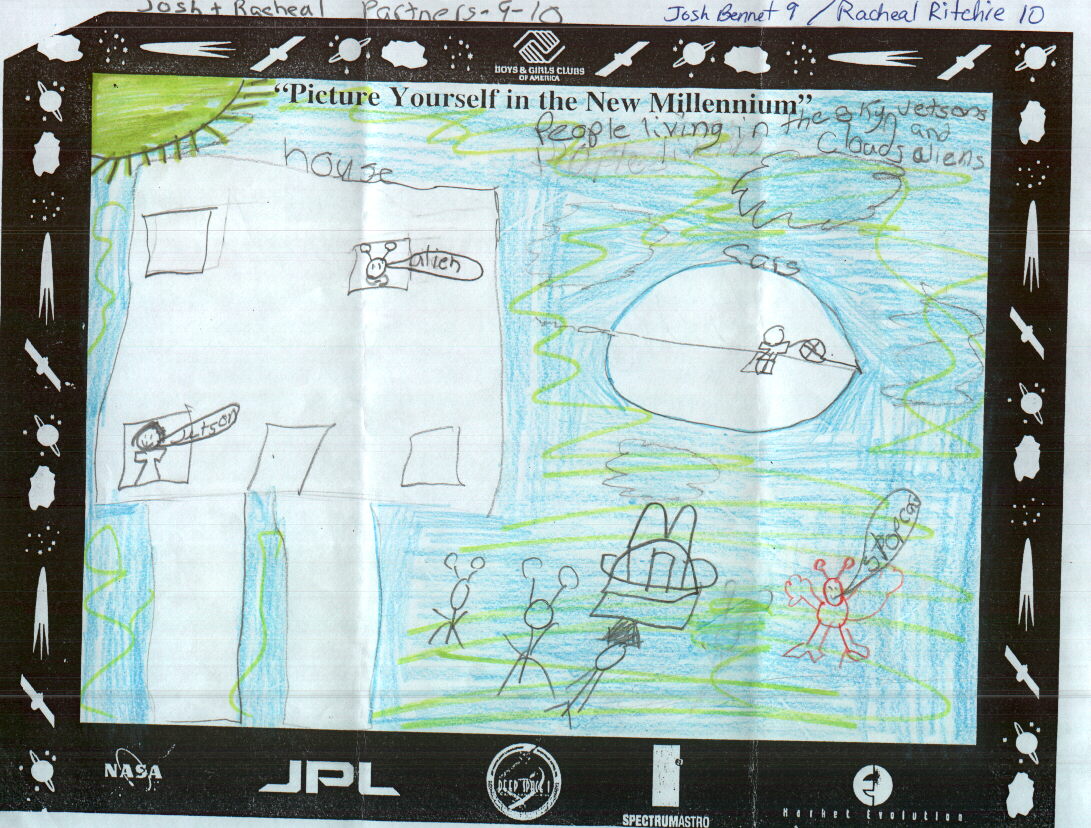 Josh + Racheal Partners-9-10
Josh Bennet 9 / Racheal Ritchie 10
BOYS & GIRLS CLUBS
OF AMERICA
"Picture Yourself in the New Millennium"
People living in the sky Jetsons
and
Clouds aliens
house
alien
Cars
Jetson
Stop car
NASA
JPL
DEEP SPACE 1
SPECTRUMASTRO
Market Evolution